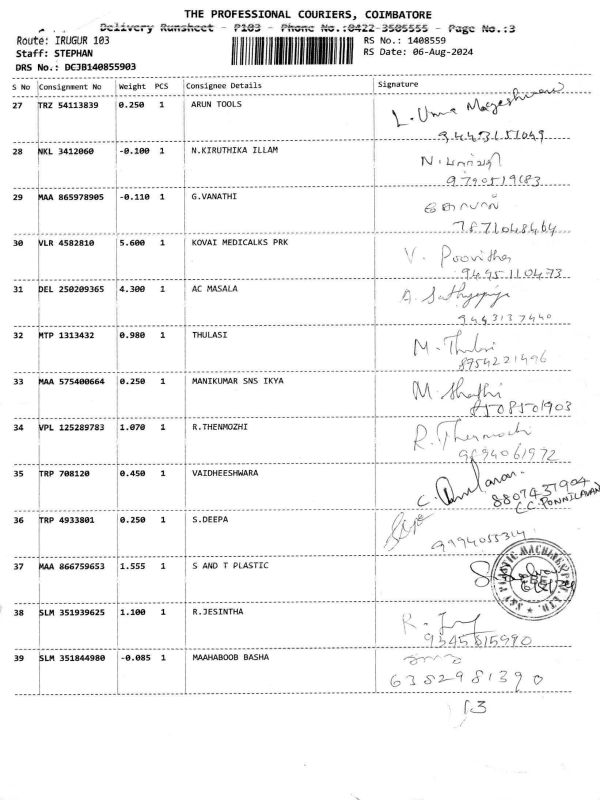 THE PROFESSIONAL COURIERS, COIMBATORE
Delivery Runsheet - P103 - Phone No.:0422-3505555 - Page No.:3
Route: IRUGUR 103
RS No.: 1408559
Staff: STEPHAN
RS Date: 06-Aug-2024
DRS No.: DCJB140855903
S No Consignment No Weight PCS Consignee Details Signature
27 TRZ 54113839 0.250 1 ARUN TOOLS L. Uma Mageshwari
9443151049
28 NKL 3412060 -0.100 1 N.KIRUTHIKA ILLAM N.
9790519683
29 MAA 865978905 -0.110 1 G.VANATHI
7871048464
30 VLR 4582810 5.600 1 KOVAI MEDICALKS PRK V. Poovitha
9495110473
31 DEL 250209365 4.300 1 AC MASALA A. Sathyapriya
9443137440
32 MTP 1313432 0.980 1 THULASI M. Thulasi
8754221496
33 MAA 575400664 0.250 1 MANIKUMAR SNS IKYA M. Shathi
8508501903
34 VPL 125289783 1.070 1 R.THENMOZHI R. Thenmozhi
9894061972
35 TRP 708120 0.450 1 VAIDHEESHWARA C.
8807437904
C.C. PONNILAVAN
36 TRP 4933801 0.250 1 S.DEEPA
9994055314
37 MAA 866759653 1.555 1 S AND T PLASTIC
38 SLM 351939625 1.100 1 R.JESINTHA R.
9345815990
39 SLM 351844980 -0.085 1 MAAHABOOB BASHA
6382981390
13